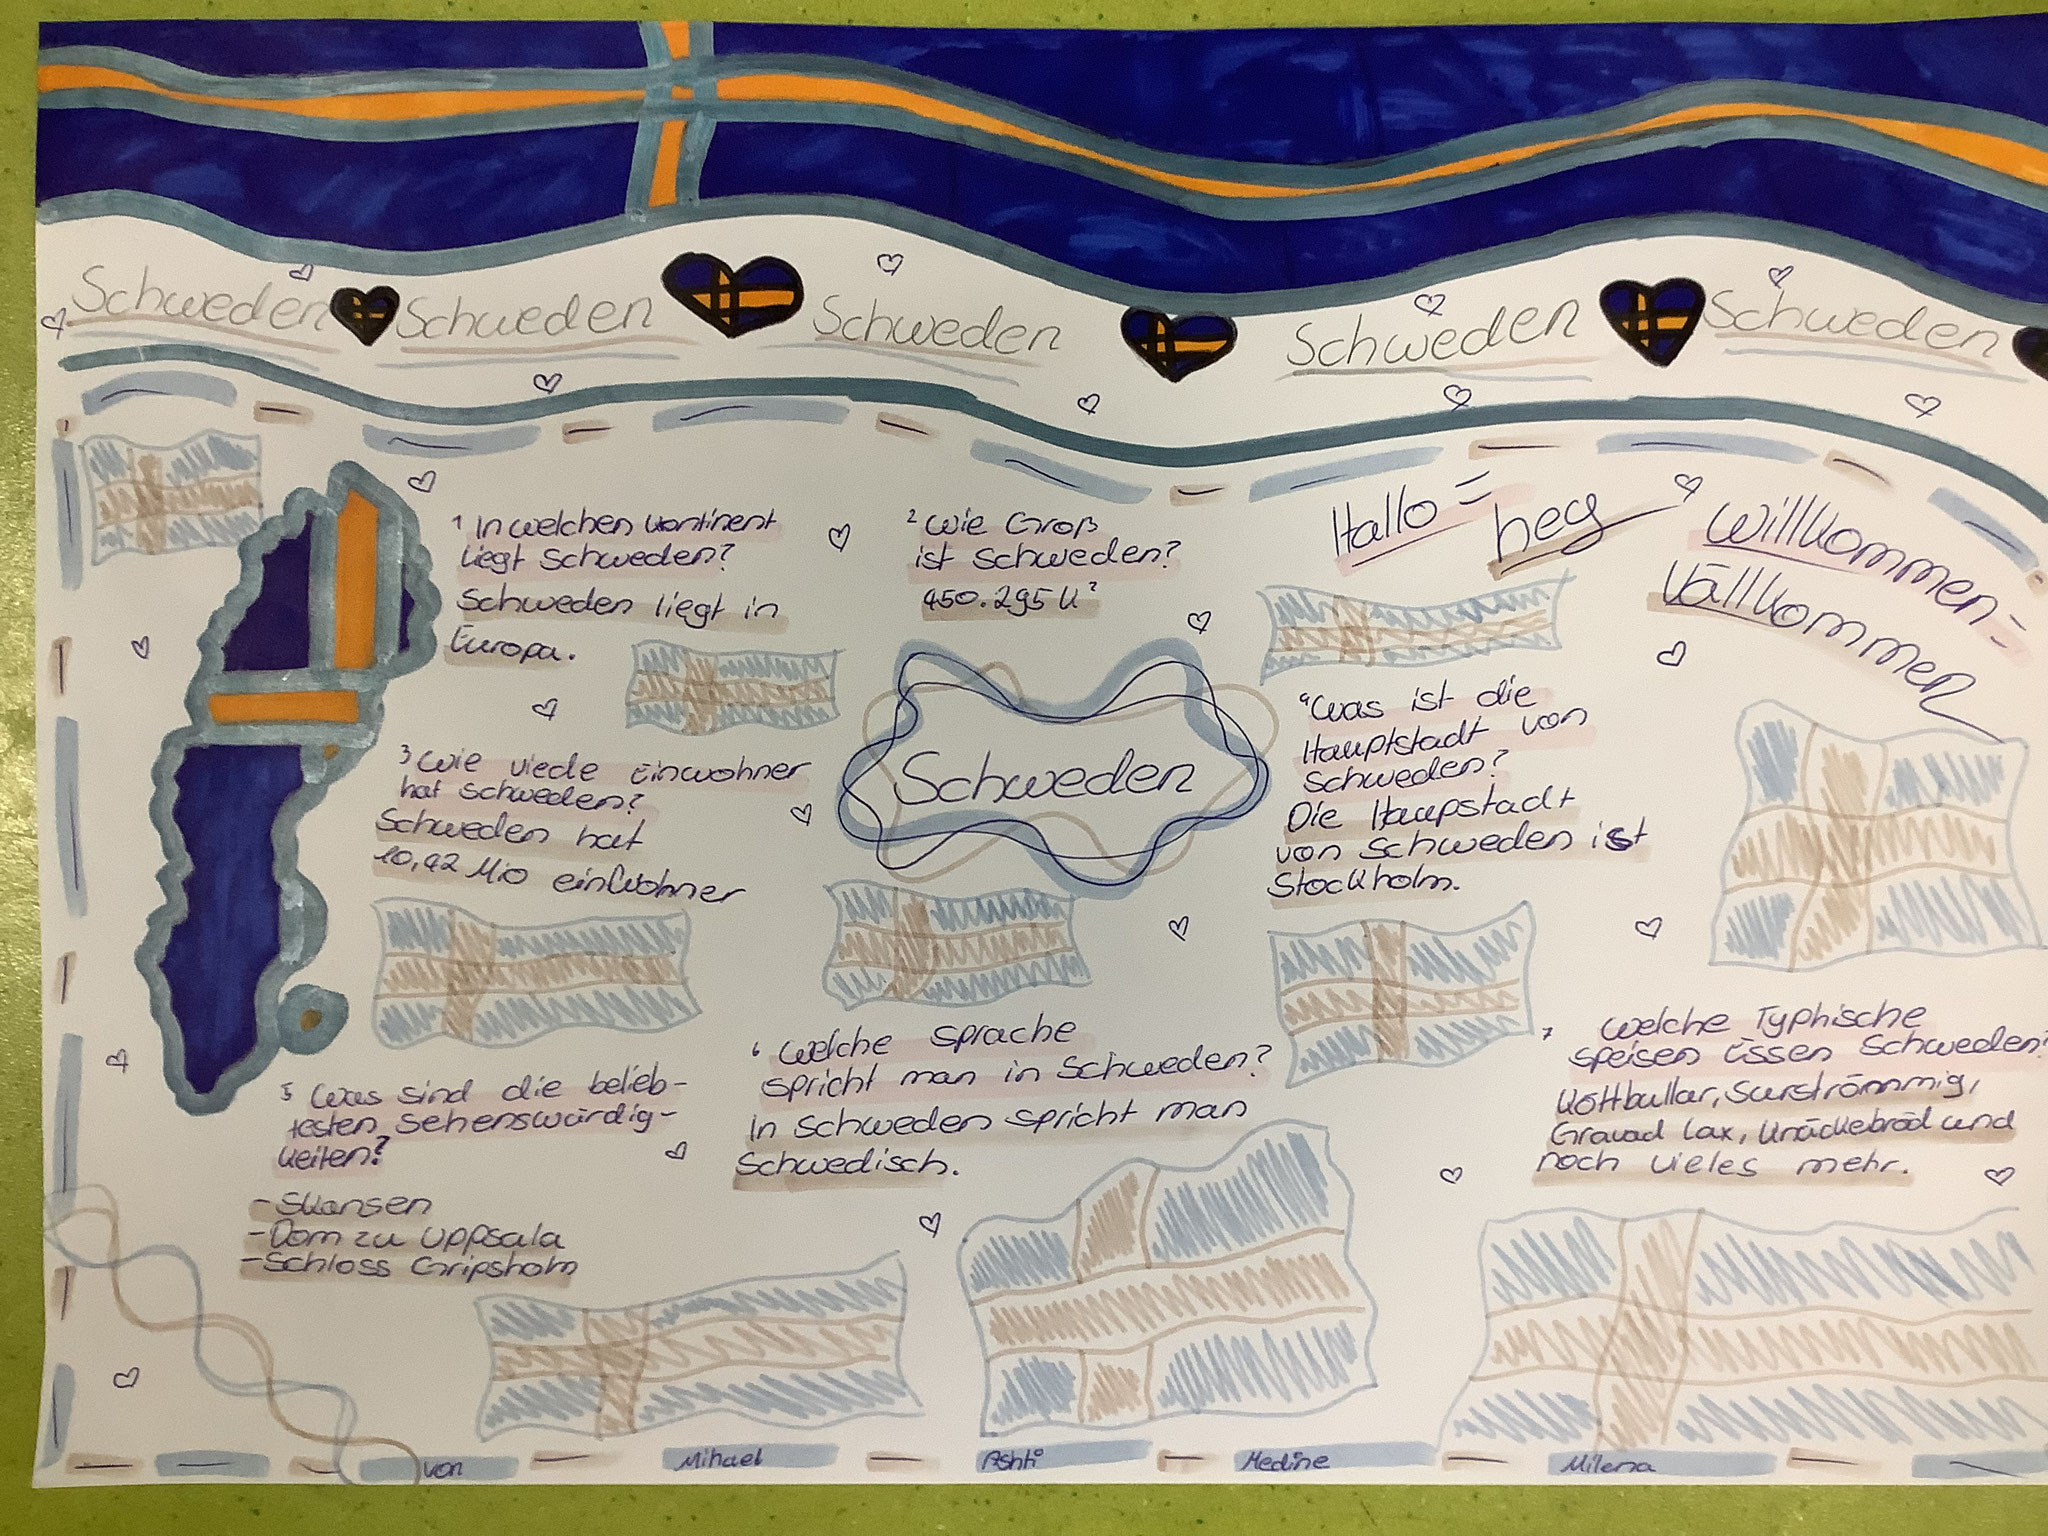 Schweden Schweden Schweden Schweden Schweden
Hallo =
hey
Willkommen =
Välkommen
1 In welchen Kontinent
liegt Schweden?
Schweden liegt in
Europa.
2 Wie Groß
ist Schweden?
450.295 K²
3 Wie viele Einwohner
hat Schweden?
Schweden hat
10,42 Mio einWohner
Schweden
4 Was ist die
Hauptstadt von
Schweden?
Die Haupstadt
von Schweden ist
Stockholm.
5 Was sind die belieb-
testen Sehenswürdig-
keiten?
- Skansen
- Dom zu Uppsala
- Schloss Gripsholm
6 Welche Sprache
spricht man in Schweden?
In Schweden spricht man
Schwedisch.
7 Welche Typhische
speisen Essen Schweden?
Köttbullar, Surströmmig,
Gravad lax, Knäckebröd und
noch vieles mehr.
von Mihael Ashti Medine Milena